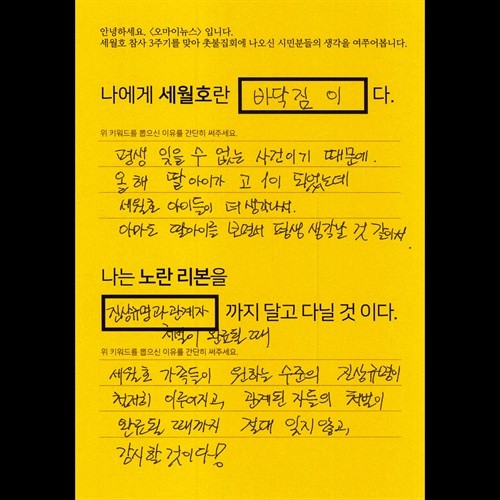 안녕하세요, <오마이뉴스> 입니다.
세월호 참사 3주기를 맞아 촛불집회에 나오신 시민분들의 생각을 여쭈어봅니다.
나에게 세월호란 이 다.
위 키워드를 뽑으신 이유를 간단히 써주세요.
평생 잊을 수 없는 사건이기 때문에.
올해 딸아이가 고1이 되었는데
세월호 아이들이 더 생각나서.
아마도 딸아이를 보면서 평생 생각날 것 같아서.
나는 노란 리본을
진상규명과 관계자 까지 달고 다닐 것 이다.
처벌이 완료될 때
위 키워드를 뽑으신 이유를 간단히 써주세요.
세월호 가족들이 원하는 수준의 진상규명이
철저히 이루어지고, 관계된 자들의 처벌이
완료될 때까지 절대 잊지 않고,
감시할 것이다!